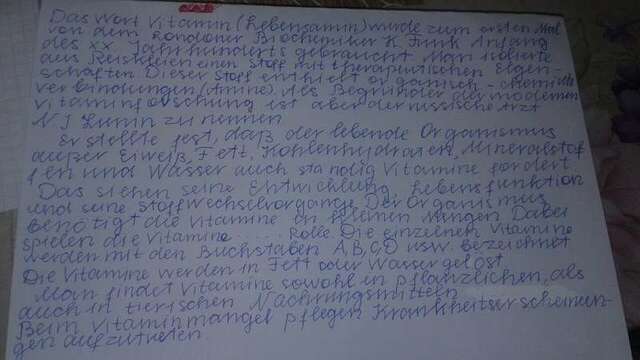 Das Wort Vitamin (Lebensamin) wurde zum ersten Mal
von dem Londoner Biochemiker K. Funk Anfang
des XX Jahrhunderts gebraucht. Man isolierte
aus Reiskleien einen Stoff mit therapeutischen Eigen-
schaften. Dieser Stoff enthielt organisch-chemische
Verbindungen (Amine). Als Begründer der modernen
Vitaminforschung ist aber der russische Arzt
N J Lunin zu nennen
Er stellte fest, daß der lebende Organismus
außer Eiweiß, Fett, Kohlenhydraten, Mineralstof
fen und Wasser auch ständig Vitamine fordert
Das siehen seine Entwicklung, Lebensfunktion
und seine Stoffwechselvorgänge Der Organismus
benötigt die Vitamine in kleinen Mengen Dabei
spielen die Vitamine ..... Rolle Die einzelnen Vitamine
werden mit den Buchstaben A, B, C, D usw. bezeichnet
Die Vitamine werden in Fett oder Wasser gelöst
Man findet Vitamine sowohl in pflanzlichen, als
auch in tierischen Nachrungsmitteln
Beim Vitaminmangel pflegen Krankheitserscheinun-
gen aufzutreten